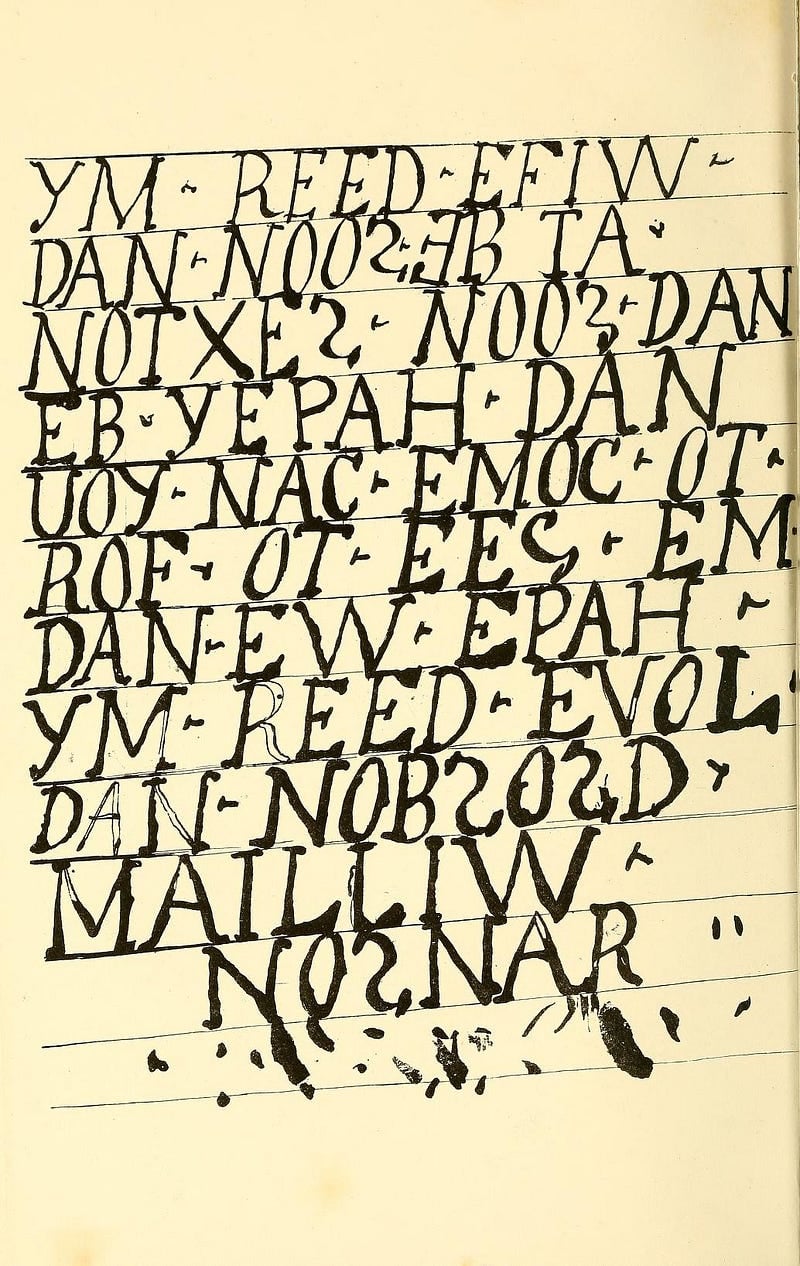 YM REED EFIW
DAN NOOS EB TA
NOTXES NOOS DAN
EB YEPAH DAN
UOY NAC EMOC OT
ROF OT EES EM
DAN EW EPAH
YM REED EVOL
DAN NOBSOSD
MAILLIW
NOSNAR